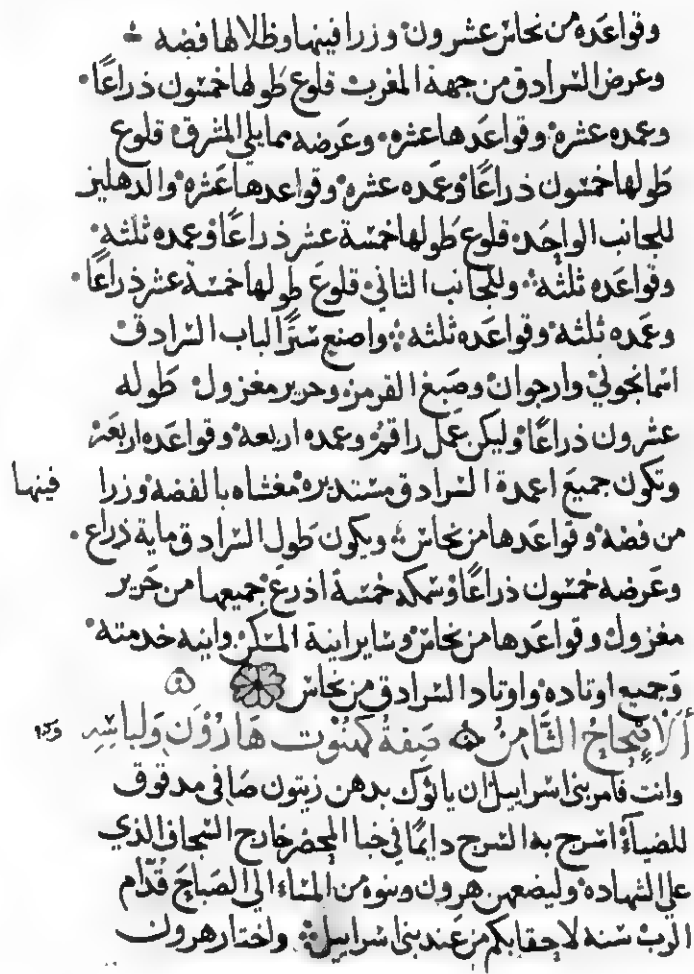 وقواعده من نحاس عشرون وزرافينها وظلالها فضه
وعرض السرادق من جهة المغرب قلوع طولها خمسون ذراعًا
وعمده عشره وقواعدها عشره وعرضه مما يلي المشرق قلوع
طولها خمسون ذراعًا وعمده عشره وقواعدها عشره والدهليز
للجانب الواحد قلوع طولها خمسة عشر ذراعًا وعمده ثلثه
وقواعده ثلثه وللجانب الثاني قلوع طولها خمسة عشر ذراعًا
وعمده ثلثه وقواعده ثلثه واصنع سترًا لباب السرادق
اسمانجوني وارجوان وصبغ القرمز وحرير مغزول طوله
عشرون ذراعًا وليكن عمل راقم وعمده اربعه وقواعده اربعه
وتكون جميع اعمدة السرادق مستديره مغشاه بالفضه وزرا فينها
من فضه وقواعدها من نحاس ويكون طول السرادق ماية ذراع
وعرضه خمسون ذراعًا وسمكه خمسة اذرع جميعها من حرير
مغزول وقواعدها من نحاس وساير انية المسكن وانيه خدمته
وجميع اوتاده واوتاد السرادق من نحاس
ألإصحاح الثامن صفة كهنوت هارون ولباسه
وانت فامر بنى اسراييل ان ياتوك بدهن زيتون صافى مدقوق
للضيآء اسرج به السرج دايمًا في خبا المحضر خارج السجاف الذي
على الشهاده وليضعهن هرون وبنوه من المساء الي الصباح قدّام
الرب سنه لاحقابكم من عند بنى اسراييل واختار هرون